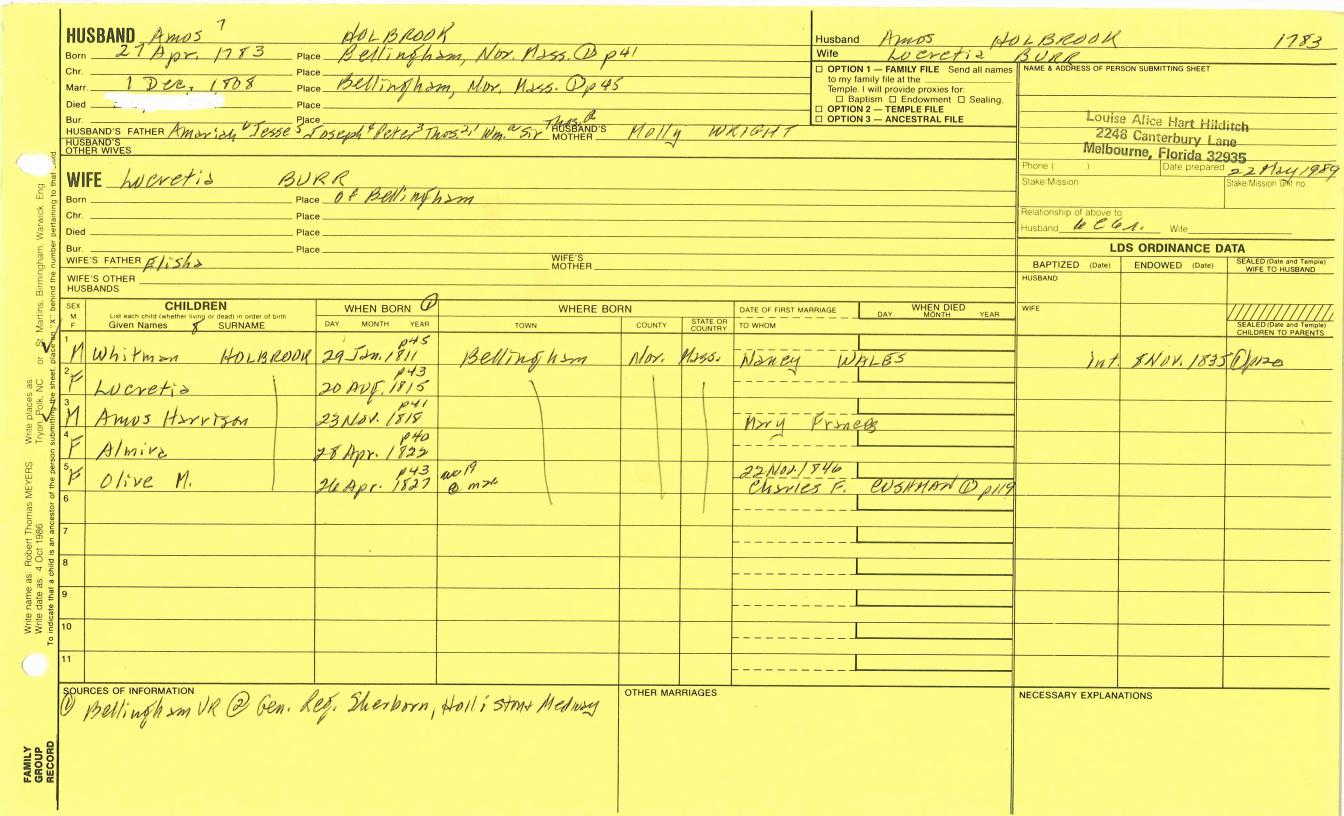 HUSBAND Amos 7 HOLBROOK
Born 27 Apr. 1783 Place Bellingham, Nor. Mass. ① p41
Chr. Place
Marr. 1 Dec. 1808 Place Bellingham, Nor. Mass. ① p45
Died Place
Bur. Place
HUSBAND'S FATHER Amariah 6 Jesse 5 Joseph 4 Peter 3 Thos 2, 1 Wm. a Sir Thos. HUSBAND'S MOTHER Molly WRIGHT
HUSBAND'S OTHER WIVES
Husband Amos HOLBROOK 1783
Wife Lucretia BURR
☐ OPTION 1 — FAMILY FILE Send all names
to my family file at the
Temple. I will provide proxies for:
☐ Baptism ☐ Endowment ☐ Sealing.
☐ OPTION 2 — TEMPLE FILE
☐ OPTION 3 — ANCESTRAL FILE
NAME & ADDRESS OF PERSON SUBMITTING SHEET
Louise Alice Hart Hilditch
2248 Canterbury Lane
Melbourne, Florida 32935
Phone ( ) Date prepared 22 May 1989
Stake/Mission Stake/Mission Unit no.
Relationship of above to
Husband Wife
WIFE Lucretia BURR
Born Place of Bellingham
Chr. Place
Died Place
Bur. Place
WIFE'S FATHER Elisha WIFE'S MOTHER
WIFE'S OTHER HUSBANDS
LDS ORDINANCE DATA
BAPTIZED (Date) ENDOWED (Date) SEALED (Date and Temple) WIFE TO HUSBAND
HUSBAND
WIFE
SEALED (Date and Temple) CHILDREN TO PARENTS
SEX M. F CHILDREN WHEN BORN ① WHERE BORN DATE OF FIRST MARRIAGE WHEN DIED
List each child (whether living or dead) in order of birth
Given Names 8 SURNAME DAY MONTH YEAR TOWN COUNTY STATE OR COUNTRY TO WHOM DAY MONTH YEAR
1 M Whitman HOLBROOK 29 Jan. 1811 p45 Bellingham Nor. Mass. Nancy WALES Int. 8 NOV. 1835 ① p120
2 F Lucretia 20 Aug. 1815 p43
3 M Amos Harrison 23 Nov. 1818 p41 Mary Frances
4 F Almira 28 Apr. 1822 p40
5 F Olive M. 26 Apr. 1827 p43 22 Nov. 1846
Charles F. CUSHMAN ① p119
6
7
8
9
10
11
SOURCES OF INFORMATION
① Bellingham VR ② Gen. Reg. Sherborn, Holliston & Medway
OTHER MARRIAGES
NECESSARY EXPLANATIONS
Write name as: Robert Thomas MEYERS Write places as
Write date as: 4 Oct 1986 Tryon, Polk, NC or St. Martins, Birmingham, Warwick, Eng.
To indicate that a child is an ancestor of the person submitting the sheet, place an "X" behind the number pertaining to that
FAMILY GROUP RECORD